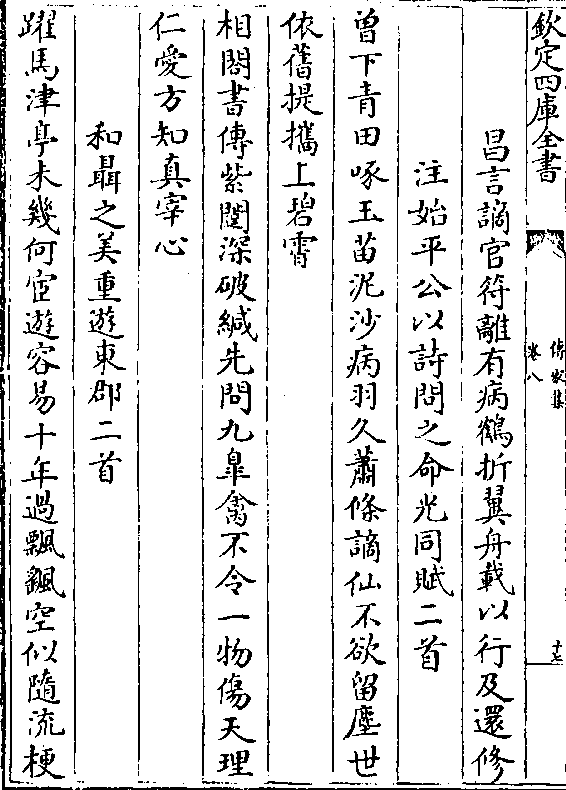 欽定四庫全書
傳家集
卷八
十七
昌言謫官符離有病鶴折翼舟載以行及還修
注始平公以詩問之命光同賦二首
曾下青田啄玉苗泥沙病羽久蕭條謫仙不欲留塵世
依舊提攜上碧霄
相閤書傳紫闥深破緘先問九臯禽不令一物傷天理
仁愛方知真宰心
和聶之美重遊東郡二首
躍馬津亭未幾何宦遊容易十年過飄飄空似隨流梗